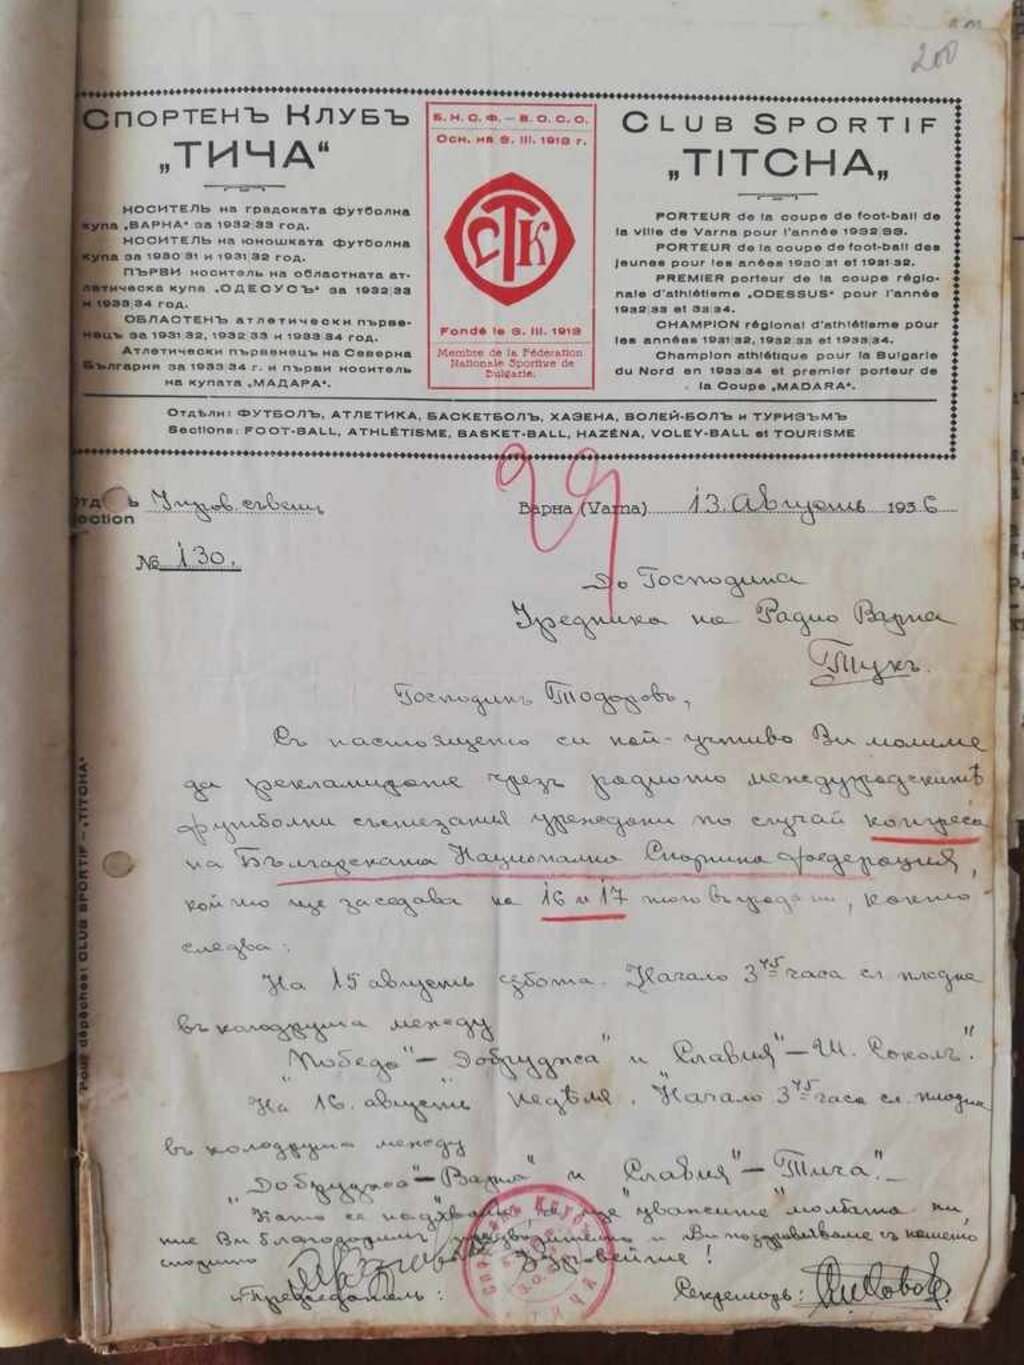 200
СПОРТЕНЪ КЛУБЪ
„ТИЧА“
НОСИТЕЛЬ на градската футболна
купа „ВАРНА“ за 1932/33 год.
НОСИТЕЛЬ на юношката футболна
купа за 1930/31 и 1931/32 год.
ПЪРВИ носитель на областната ат-
летическа купа „ОДЕСУСЪ“ за 1932/33
и 1933/34 год.
ОБЛАСТЕНЪ атлетически първе-
нецъ за 1931/32, 1932/33 и 1933/34 год.
Атлетически първенецъ на Северна
България за 1933/34 г. и първи носитель
на купата „МАДАРА“.
Б.Н.С.Ф. – В.О.С.О.
Осн. на 3. III. 1913 г.
СТК
Fondé le 3. III. 1913
Membre de la Fédération
Nationale Sportive de
Bulgarie.
CLUB SPORTIF
„TITCHA„
PORTEUR de la coupe de foot-ball de
la ville de Varna pour l'année 1932/33.
PORTEUR de la coupe de foot-ball des
jeunes pour les anées 1930/31 et 1931/32.
PREMIER porteur de la coupe régio-
nale d'athlétisme „ODESSUS“ pour l'année
1932/33 et 33/34.
CHAMPION régional d'athlétisme pour
les années 1931/32, 1932/33 et 1933/34.
Champion athlétique pour la Bulgarie
du Nord en 1933/34 et premier porteur de
la Coupe „MADARA“.
Отдѣли: ФУТБОЛЪ, АТЛЕТИКА, БАСКЕТБОЛЪ, ХАЗЕНА, ВОЛЕЙ-БОЛЪ и ТУРИЗЪМЪ
Sections: FOOT-BALL, ATHLÉTISME, BASKET-BALL, HAZÉNA, VOLEY-BALL et TOURISME
99
Варна (Varna) 13. Августъ 1936
ection
№ 130.
До Господина
Уредника на Радио Варна
Тукъ.
Господинъ Тодоровъ,
Съ настоящето си най-учтиво Ви молиме
да рекламирате чрезъ радиото междуградскитѣ
футболни състезания уреждани по случай конгреса
на Българската Национална Спортна Федерация,
който ще заседава на 16 и 17 того въ града ни, както
следва:
На 15 августъ събота. Начало 3 45 часа сл. пладне
въ колодрума между
„Победа“ – „Добруджа“ и „Славия“ – „Ш. Соколъ“.
На 16. августъ недѣля. Начало 3 45 часа сл. пладне
въ колодрума между
„Добруджа“ – „Варна“ и „Славия“ – „Тича“.
Като се надѣваме че ще уважите молбата ни,
ние Ви благодаримъ и Ви поздравяваме съ нашето
спортно Здравейте!
Председатель: Секретарь:
СПОРТЕНЪ КЛУБЪ ТИЧА
Pour dépêches: CLUB SPORTIF – „TITCHA“